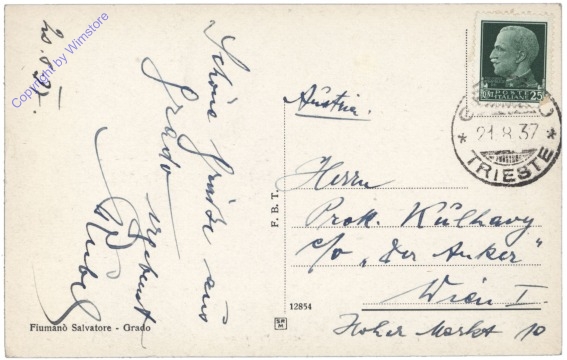 20.8.37.
Schöne Grüße aus
Grado
ergebenst
Copyright by Wimstore
Fiumanò Salvatore - Grado
F. B. T.
12854
POSTE
ITALIANE
25
21.8.37
TRIESTE
Austria.
Herrn
Prok. Kulhavy
c/o „Der Anker"
Wien I.
Hoher Markt 10